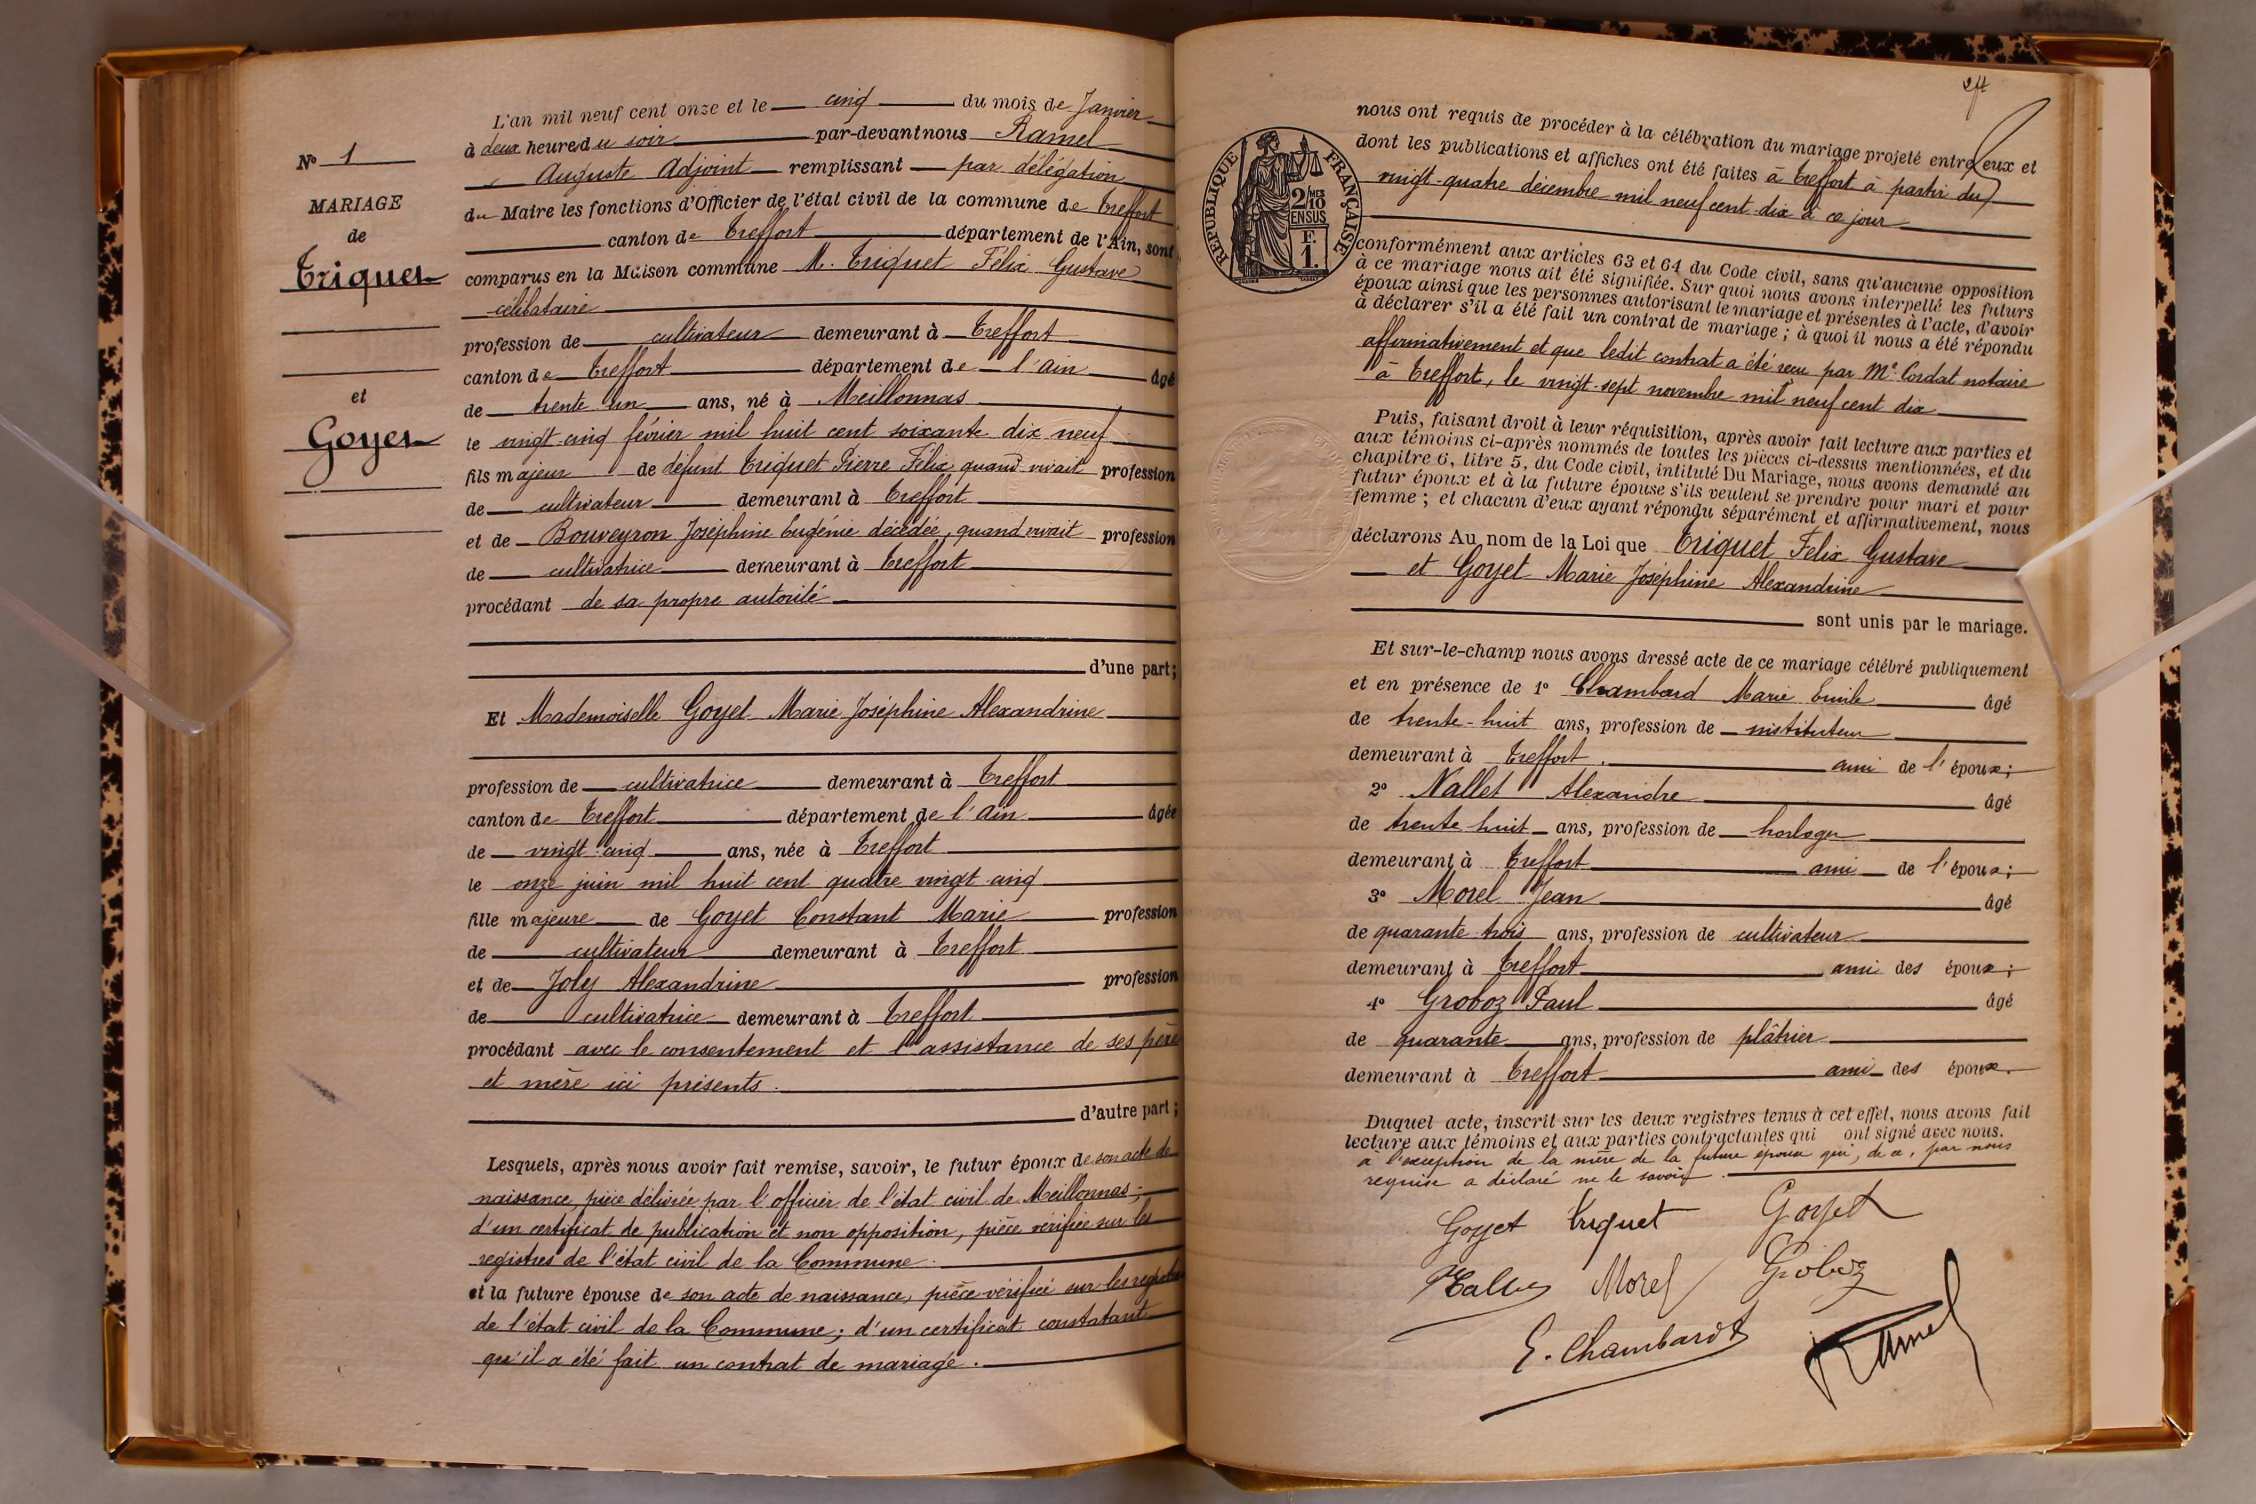 N° 1
MARIAGE
de
Triquet
et
Goyet
L'an mil neuf cent onze et le cinq du mois de Janvier
à deux heures du soir par-devant nous Ramel
Auguste Adjoint remplissant par délégation
du Maire les fonctions d'Officier de l'état civil de la commune de Treffort
canton de Treffort département de l'Ain, sont
comparus en la Maison commune M. Triquet Félix Gustave
célibataire
profession de cultivateur demeurant à Treffort
canton de Treffort département de l'Ain âgé
de trente un ans, né à Meillonnas
le vingt cinq février mil huit cent soixante dix neuf
fils majeur de défunt Triquet Pierre Félix, quand vivait profession
de cultivateur demeurant à Treffort
et de Bouveyron Joséphine Eugénie décédée, quand vivait profession
de cultivatrice demeurant à Treffort
procédant de sa propre autorité
d'une part;
Et Mademoiselle Goyet Marie Joséphine Alexandrine
profession de cultivatrice demeurant à Treffort
canton de Treffort département de l'Ain âgée
de vingt cinq ans, née à Treffort
le onze juin mil huit cent quatre vingt cinq
fille majeure de Goyet Constant Marie profession
de cultivateur demeurant à Treffort
et de Joly Alexandrine profession
de cultivatrice demeurant à Treffort
procédant avec le consentement et l'assistance de ses père
et mère ici présents.
d'autre part;
Lesquels, après nous avoir fait remise, savoir, le futur époux de son acte de
naissance, pièce délivrée par l'officier de l'état civil de Meillonnas;
d'un certificat de publication et non opposition, pièce vérifiée sur les
registres de l'état civil de la Commune.
et la future épouse de son acte de naissance, pièce vérifiée sur les registres
de l'état civil de la Commune; d'un certificat constatant
qu'il a été fait un contrat de mariage.
24
RÉPUBLIQUE FRANÇAISE
2/10 EN SUS
F.
1.
nous ont requis de procéder à la célébration du mariage projeté entre eux et
dont les publications et affiches ont été faites à Treffort à partir du
vingt-quatre décembre mil neuf cent dix à ce jour
conformément aux articles 63 et 64 du Code civil, sans qu'aucune opposition
à ce mariage nous ait été signifiée. Sur quoi nous avons interpellé les futurs
époux ainsi que les personnes autorisant le mariage et présentes à l'acte, d'avoir
à déclarer s'il a été fait un contrat de mariage; à quoi il nous a été répondu
affirmativement et que ledit contrat a été reçu par Me Cordat notaire
à Treffort, le vingt-sept novembre mil neuf cent dix
Puis, faisant droit à leur réquisition, après avoir fait lecture aux parties et
aux témoins ci-après nommés de toutes les pièces ci-dessus mentionnées, et du
chapitre 6, titre 5, du Code civil, intitulé Du Mariage, nous avons demandé au
futur époux et à la future épouse s'ils veulent se prendre pour mari et pour
femme; et chacun d'eux ayant répondu séparément et affirmativement, nous
déclarons Au nom de la Loi que Triquet Félix Gustave
et Goyet Marie Joséphine Alexandrine
sont unis par le mariage.
Et sur-le-champ nous avons dressé acte de ce mariage célébré publiquement
et en présence de 1° Chambard Marie Emile âgé
de trente-huit ans, profession de instituteur
demeurant à Treffort. ami de l'époux;
2° Nallet Alexandre âgé
de trente huit ans, profession de horloger
demeurant à Treffort ami de l'époux;
3° Morel Jean âgé
de quarante trois ans, profession de cultivateur
demeurant à Treffort ami des époux;
4° Groboz Paul âgé
de quarante ans, profession de plâtrier
demeurant à Treffort ami des époux.
Duquel acte, inscrit sur les deux registres tenus à cet effet, nous avons fait
lecture aux témoins et aux parties contractantes qui ont signé avec nous.
à l'exception de la mère de la future épouse qui, de ce, par nous
requise a déclaré ne le savoir.
Goyet Triquet Goyet
Nallet Morel Groboz
E. Chambard Ramel